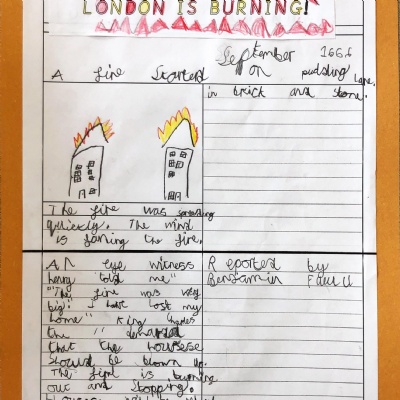 LONDON IS BURNING!
September 1666
A fire Started on pudding Lane.
in brick and stone.
The fire was spreading
quickly. The wind
is faning the fire.
An eye witness
henry told me
"The fire was very
big" I have lost my
home" King Charles
the 11 demanded
that the houses
should be blown up.
The fire is burning
out and stopping.
Reported by
Benjamin